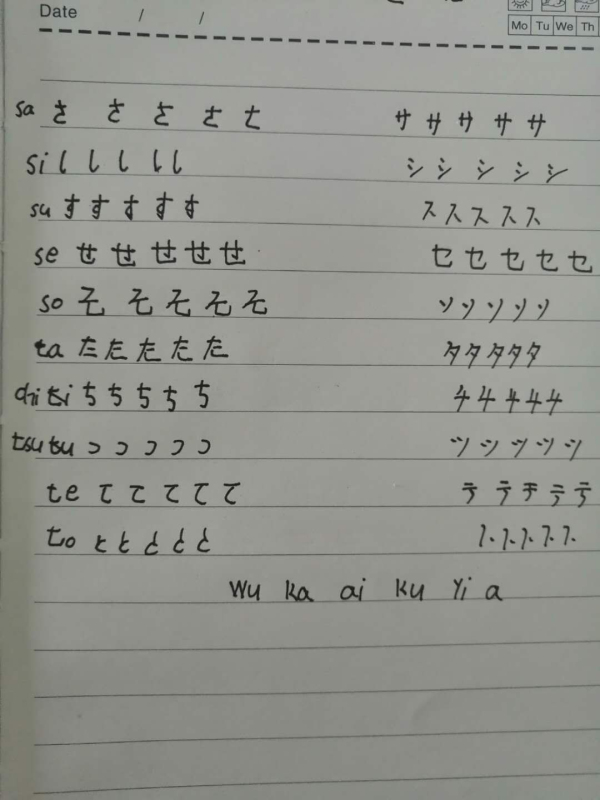 Date / /
Mo Tu We Th
sa さ さ さ さ さ サ サ サ サ サ
si し し し し し シ シ シ シ シ
su す す す す す ス ス ス ス ス
se せ せ せ せ せ セ セ セ セ セ
so そ そ そ そ そ ソ ソ ソ ソ ソ
ta た た た た た タ タ タ タ タ
chi tsi ち ち ち ち ち チ チ チ チ チ
tsu tsu つ つ つ つ つ ツ ツ ツ ツ ツ
te て て て て て テ テ テ テ テ
to と と と と と ト ト ト ト ト
wu ka ai ku yi a